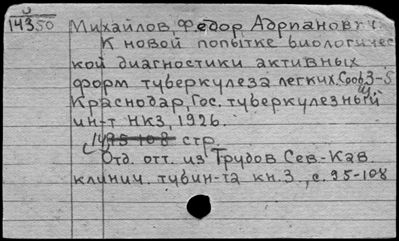 й
14350
Михайлов, Федор Адрианович.
К новой попытке биологичес-
кой диагностики активных
форм туберкулеза легких. Сооб. 3-5
Краснодар, Гос. туберкулезный
ин-т НКЗ, 1926.
14 стр.
Отд. отт. из Трудов Сев.-Кав.
клинич. тубин-та кн. 3, с. 95-108